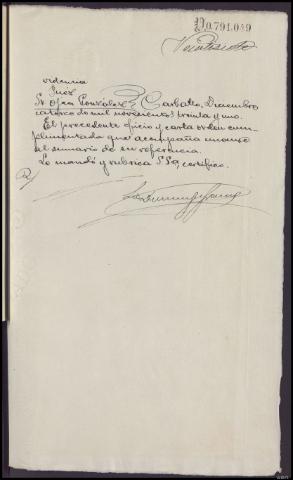 Nº.791.049
Veintisiete
Juez
Sr. González Carballo, Diciembre
catorce de mil novecientos treinta y uno.
El precedente oficio y carta orden cum-
plimentada que acompaña únanse
al sumario de su referencia.
Lo mandó y rubrica SSª, certifico.